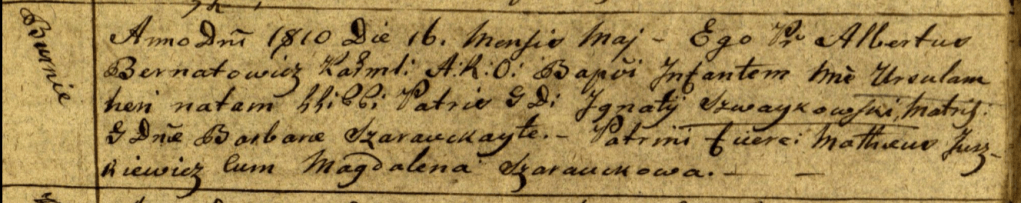 Burnie
Anno Dnī 1810 Die 16. Mensis Maj - Ego Pr Albertus
Bernatowicz A: R: O: Bapči Infantem Nnē Ursulam
heri natam LLi: CCi: Patris G Di Ignatij Szwaykowski, Matris:
G Dnæ Barbaræ Szarauckayte. - Patrini fuere: Matheus Jusz-
kiewicz Cum Magdalena Szarauckowa. -